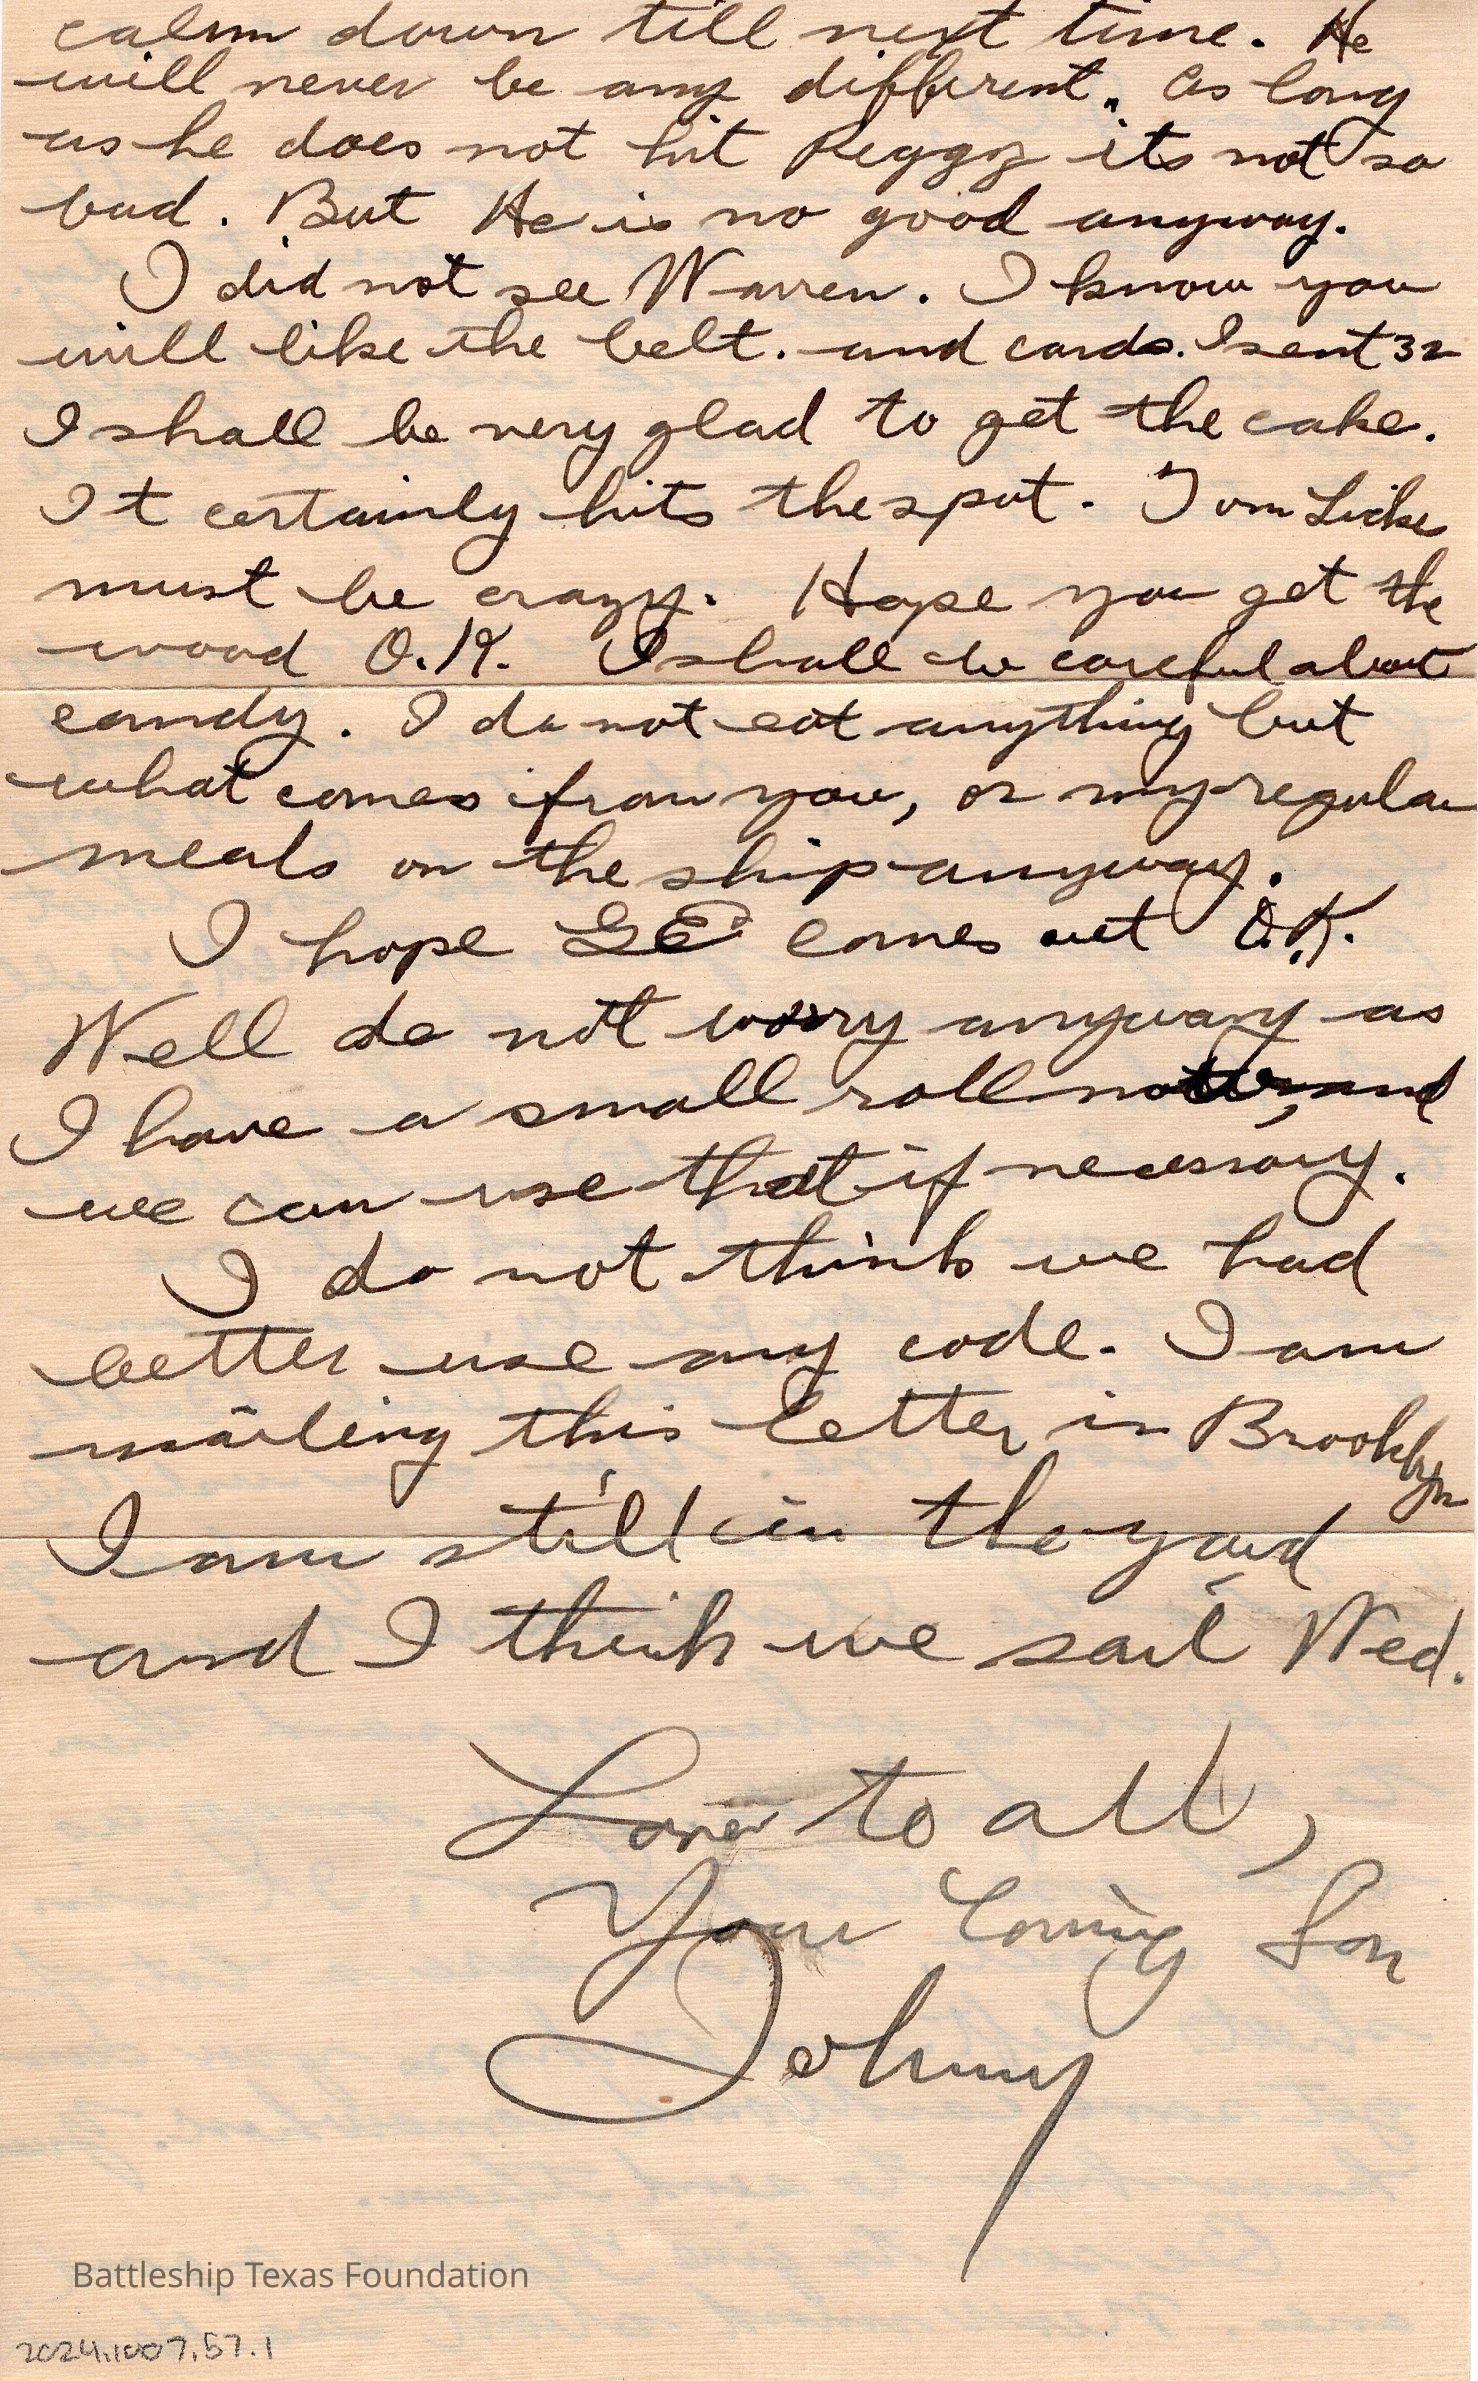 calm down till next time. He
will never be any different. As long
as he does not hit Peggy its not so
bad. But He is no good anyway.
I did not see Warren. I know you
will like the belt. and cards. I sent 32
I shall be very glad to get the cake.
It certainly hits the spot. Tom
must be crazy. Hope you get the
wood O.K. I shall be careful about
candy. I do not eat anything but
what comes from you, or my regular
meals on the ship anyway.
I hope GE comes out O.K.
Well do not worry anyway as
I have a small roll now, and
we can use that if necessary.
I do not think we had
better use any code. I am
mailing this letter in Brooklyn
I am still in the yard
and I think we sail Wed.
Love to all,
Your loving Son
Johnny
Battleship Texas Foundation
2024.1007.57.1